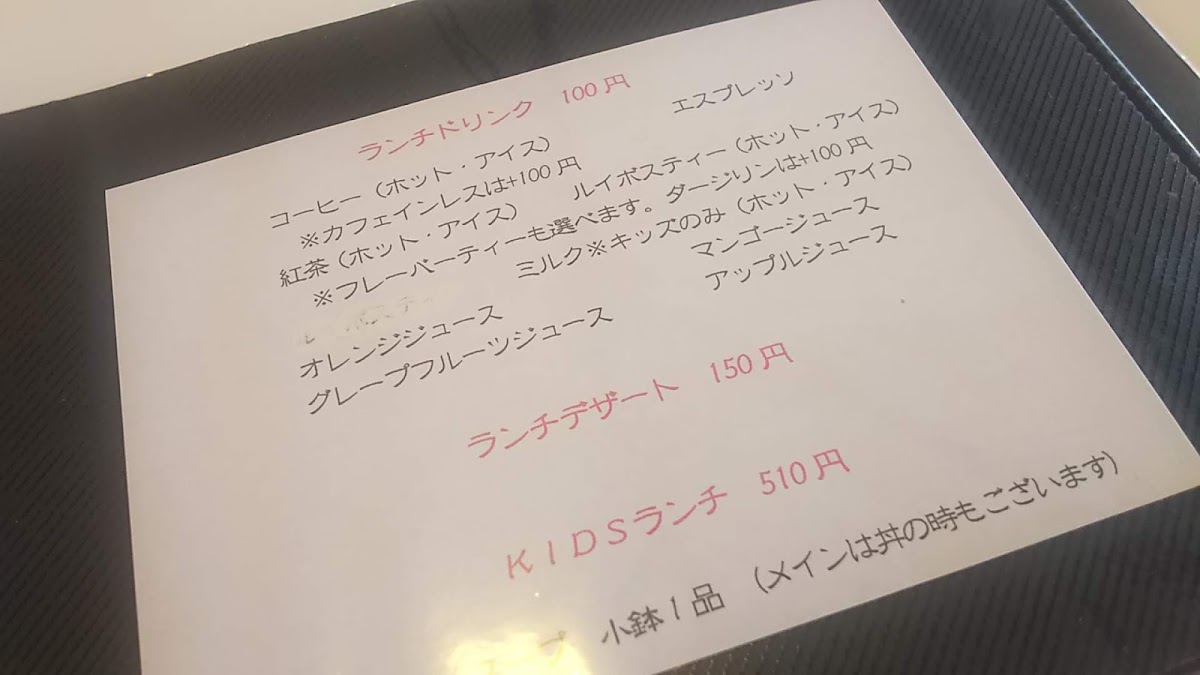 ランチドリンク 100円
コーヒー（ホット・アイス） エスプレッソ
※カフェインレスは+100円
紅茶（ホット・アイス） ルイボスティー（ホット・アイス）
※フレーバーティーも選べます。ダージリンは+100円
ミルク※キッズのみ（ホット・アイス）
オレンジジュース マンゴージュース
グレープフルーツジュース アップルジュース
ランチデザート 150円
ＫＩＤＳランチ 510円
小鉢1品 （メインは丼の時もございます）